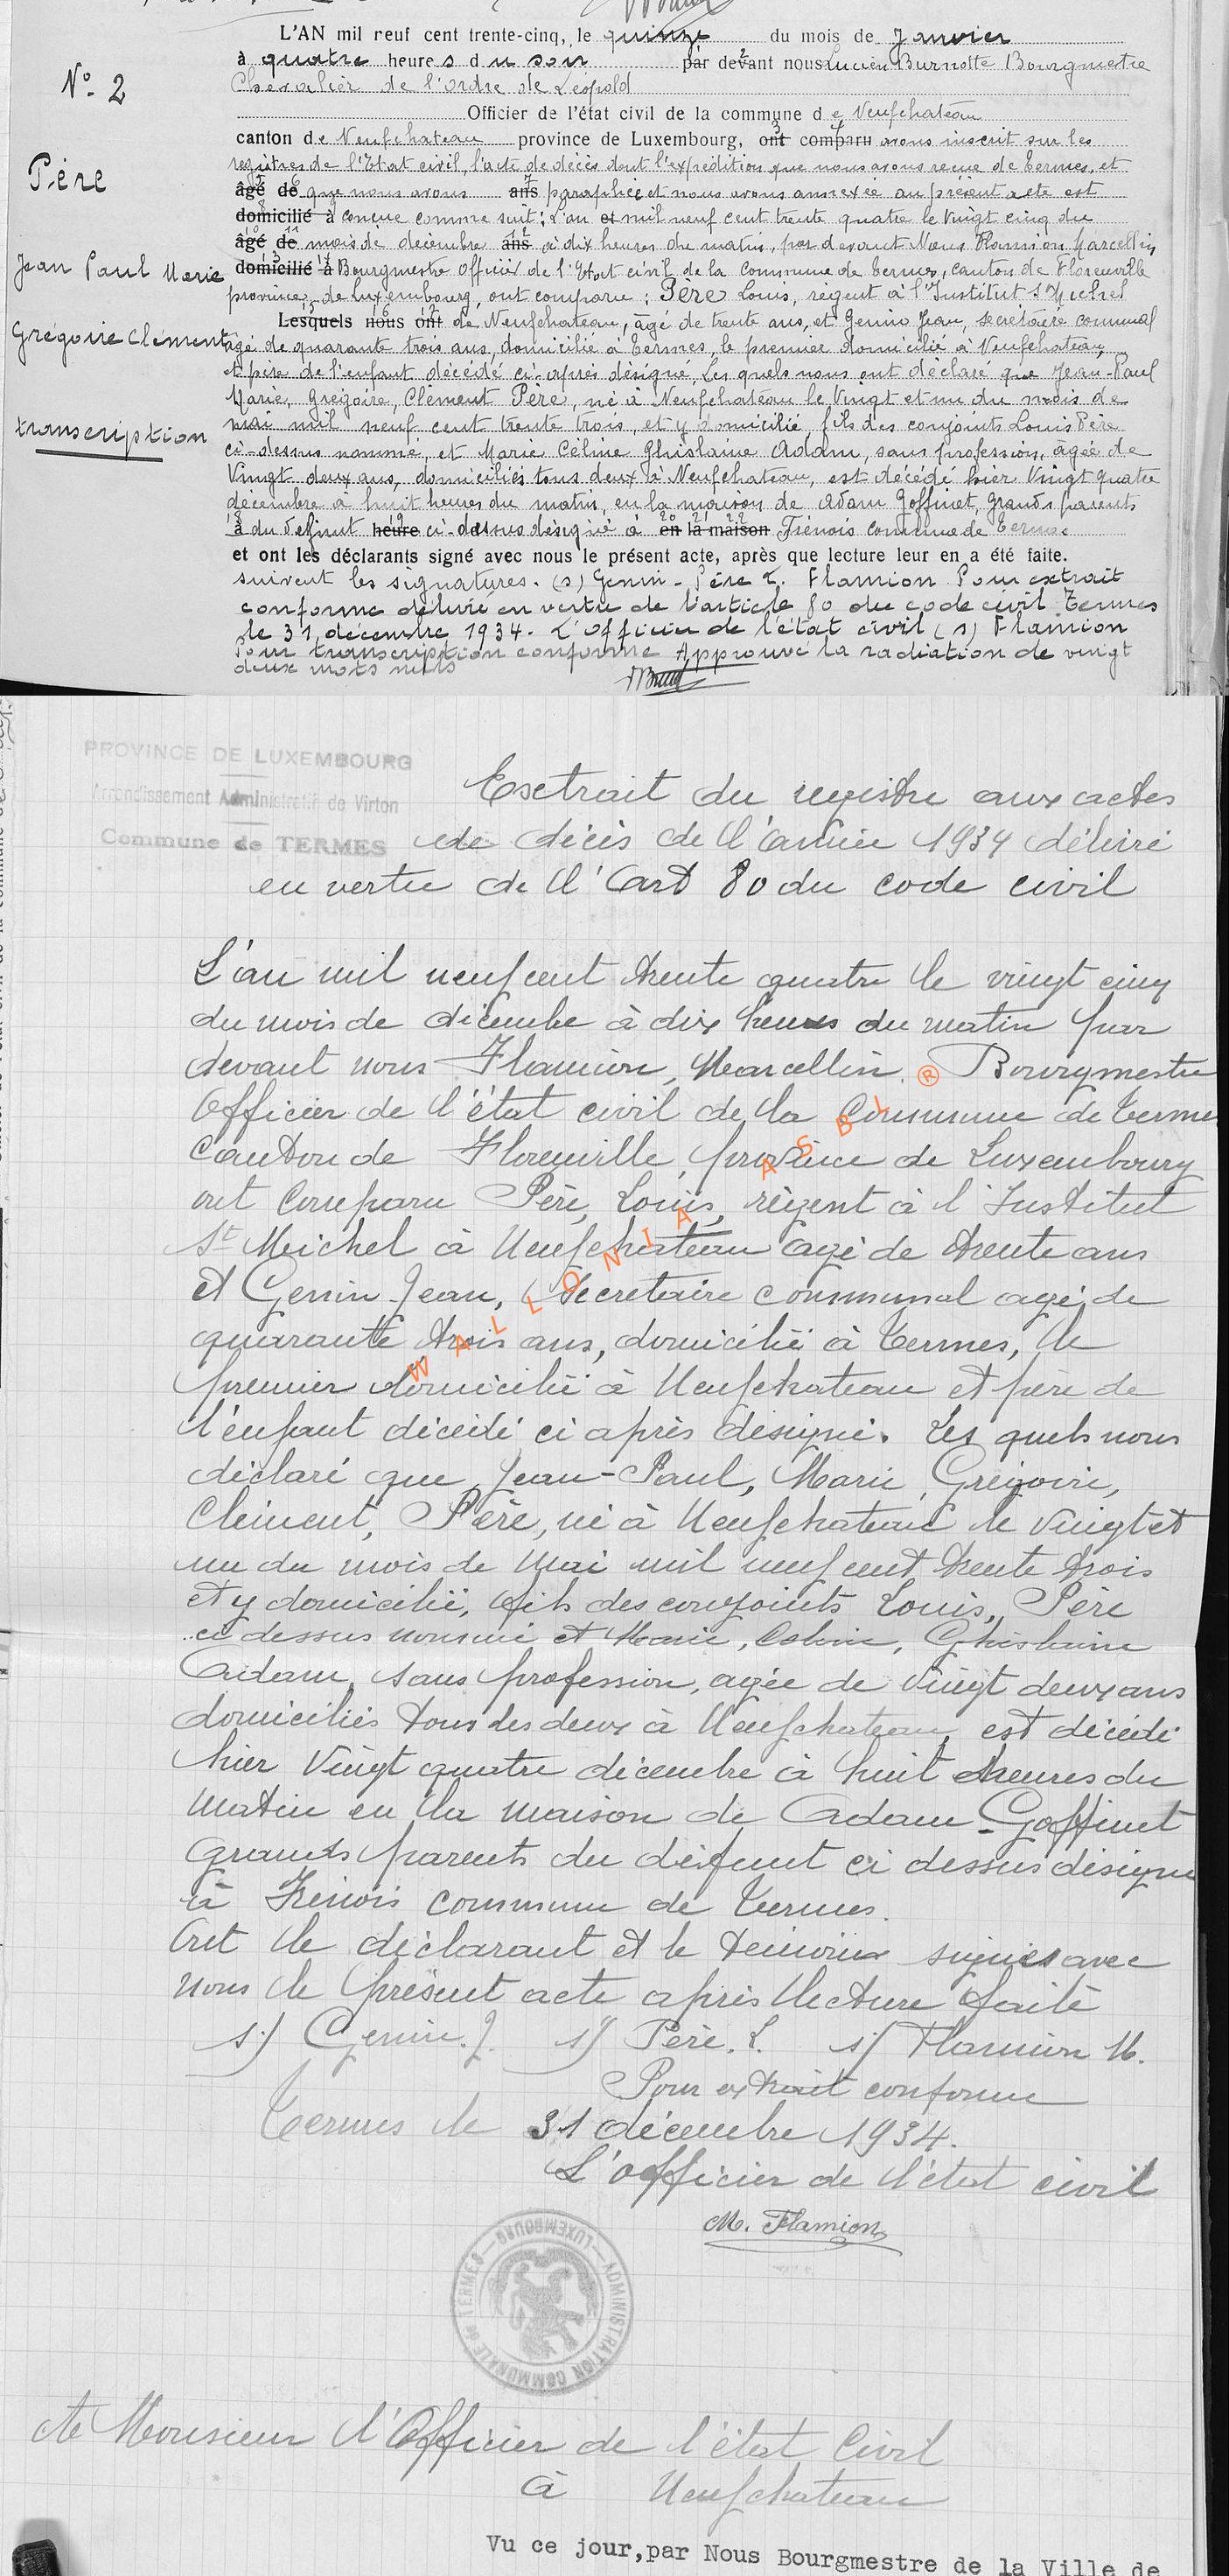 L'AN mil neuf cent trente-cinq, le quinze du mois de Janvier
à quatre heures du soir par devant nous Lucien Burnotte Bourgmestre
Chevalier de l'ordre de Léopold
Nº 2
Officier de l'état civil de la commune de Neufchateau
canton de Neufchateau province de Luxembourg, ont comparu avons inscrit sur les
registres de l'Etat civil, l'acte de décès dont l'expédition que nous avons reçue de Termes, et
Père
âgé de que nous avons ans paraphée et nous avons annexée au présent acte est
domicilié à conçue comme suit: L'an et mil neuf cent trente quatre le Vingt cinq du
âgé de mois de décembre ans à dix heures du matin, par devant Nous Flamion Marcellin,
Jean Paul Marie
domicilié à Bourgmestre Officier de l'Etat civil de la Commune de Termes, canton de Florenville
province de Luxembourg, ont comparu : Père Louis, régent à l'Institut St Michel
Lesquels nous ont de Neufchateau, âgé de trente ans, et Genin Jean, secrétaire communal
Grégoire Clément
âgé de quarante trois ans, domicilié à Termes, le premier domicilié à Neufchateau
et père de l'enfant décédé ci-après désigné, Les quels nous ont déclaré que Jean-Paul
Marie, Grégoire, Clément Père, né à Neufchateau le Vingt et un du mois de
mai mil neuf cent trente trois, et y domicilié, fils des conjoints Louis Père
transcription
ci-dessus nommé, et Marie Céline Ghislaine Adam, sans profession, âgée de
Vingt deux ans, domiciliés tous deux à Neufchateau, est décédé hier Vingt quatre
décembre à huit heures du matin, en la maison de Adam Goffinet, Grands parents
à du defunt heure ci-dessus désigné à en la maison Frénois commune de Termes
et ont les déclarants signé avec nous le présent acte, après que lecture leur en a été faite.
suivent les signatures. (s) Genin - Père L. Flamion Pour extrait
conforme délivré en vertu de l'article 80 du code civil Termes
le 31 décembre 1934. L'officier de l'état civil (s) Flamion
Pour transcription conforme Approuvé la radiation de vingt
deux mots nuls
PROVINCE DE LUXEMBOURG
Arrondissement Administratif de Virton
Commune de TERMES
Extrait du registre aux actes
de décès de l'année 1934 délivré
en vertu de l'Art 80 du code civil
L'an mil neuf cent trente quatre le vingt cinq
du mois de décembre à dix heures du matin par
devant nous Flamion, Marcellin, Bourgmestre
Officier de l'état civil de la Commune de Termes
Canton de Florenville, province de Luxembourg
ont Comparu Père, Louis, régent à l'Institut
St Michel à Neufchateau agé de trente ans
et Genin Jean, Secretaire communal agé de
quarante trois ans, domicilié à Termes, le
premier domicilié à Neufchateau et père de
l'enfant décédé ci après désigné. Les quels nous
déclaré que Jean-Paul, Marie, Grégoire,
Clément, Père, né à Neufchateau le Vingt et
un du mois de Mai mil neuf cent trente trois
et y domicilié, fils des conjoints Louis, Père
ci dessus nommé et Marie, Celine, Ghislaine
Adam, sans profession, agée de Vingt deux ans
domiciliés tous les deux à Neufchateau, est décédé
hier Vingt quatre décembre à huit heures du
Matin en la maison de Adam-Goffinet
grands parents du défunt ci dessus désigné
à Frénois commune de Termes.
Ont le déclarant et le témoin signés avec
nous le présent acte après lecture faite
s) Genin. J. s) Père. L. s) Flamion M.
Pour extrait conforme
Termes le 31 décembre 1934.
L'officier de l'état civil
M. Flamion
ADMINISTRATION COMMUNALE DE TERMES - LUXEMBOURG
WALLONIA ASBL ®
A Monsieur l'Officier de l'état Civil
à Neufchateau
Vu ce jour,par Nous Bourgmestre de la Ville de